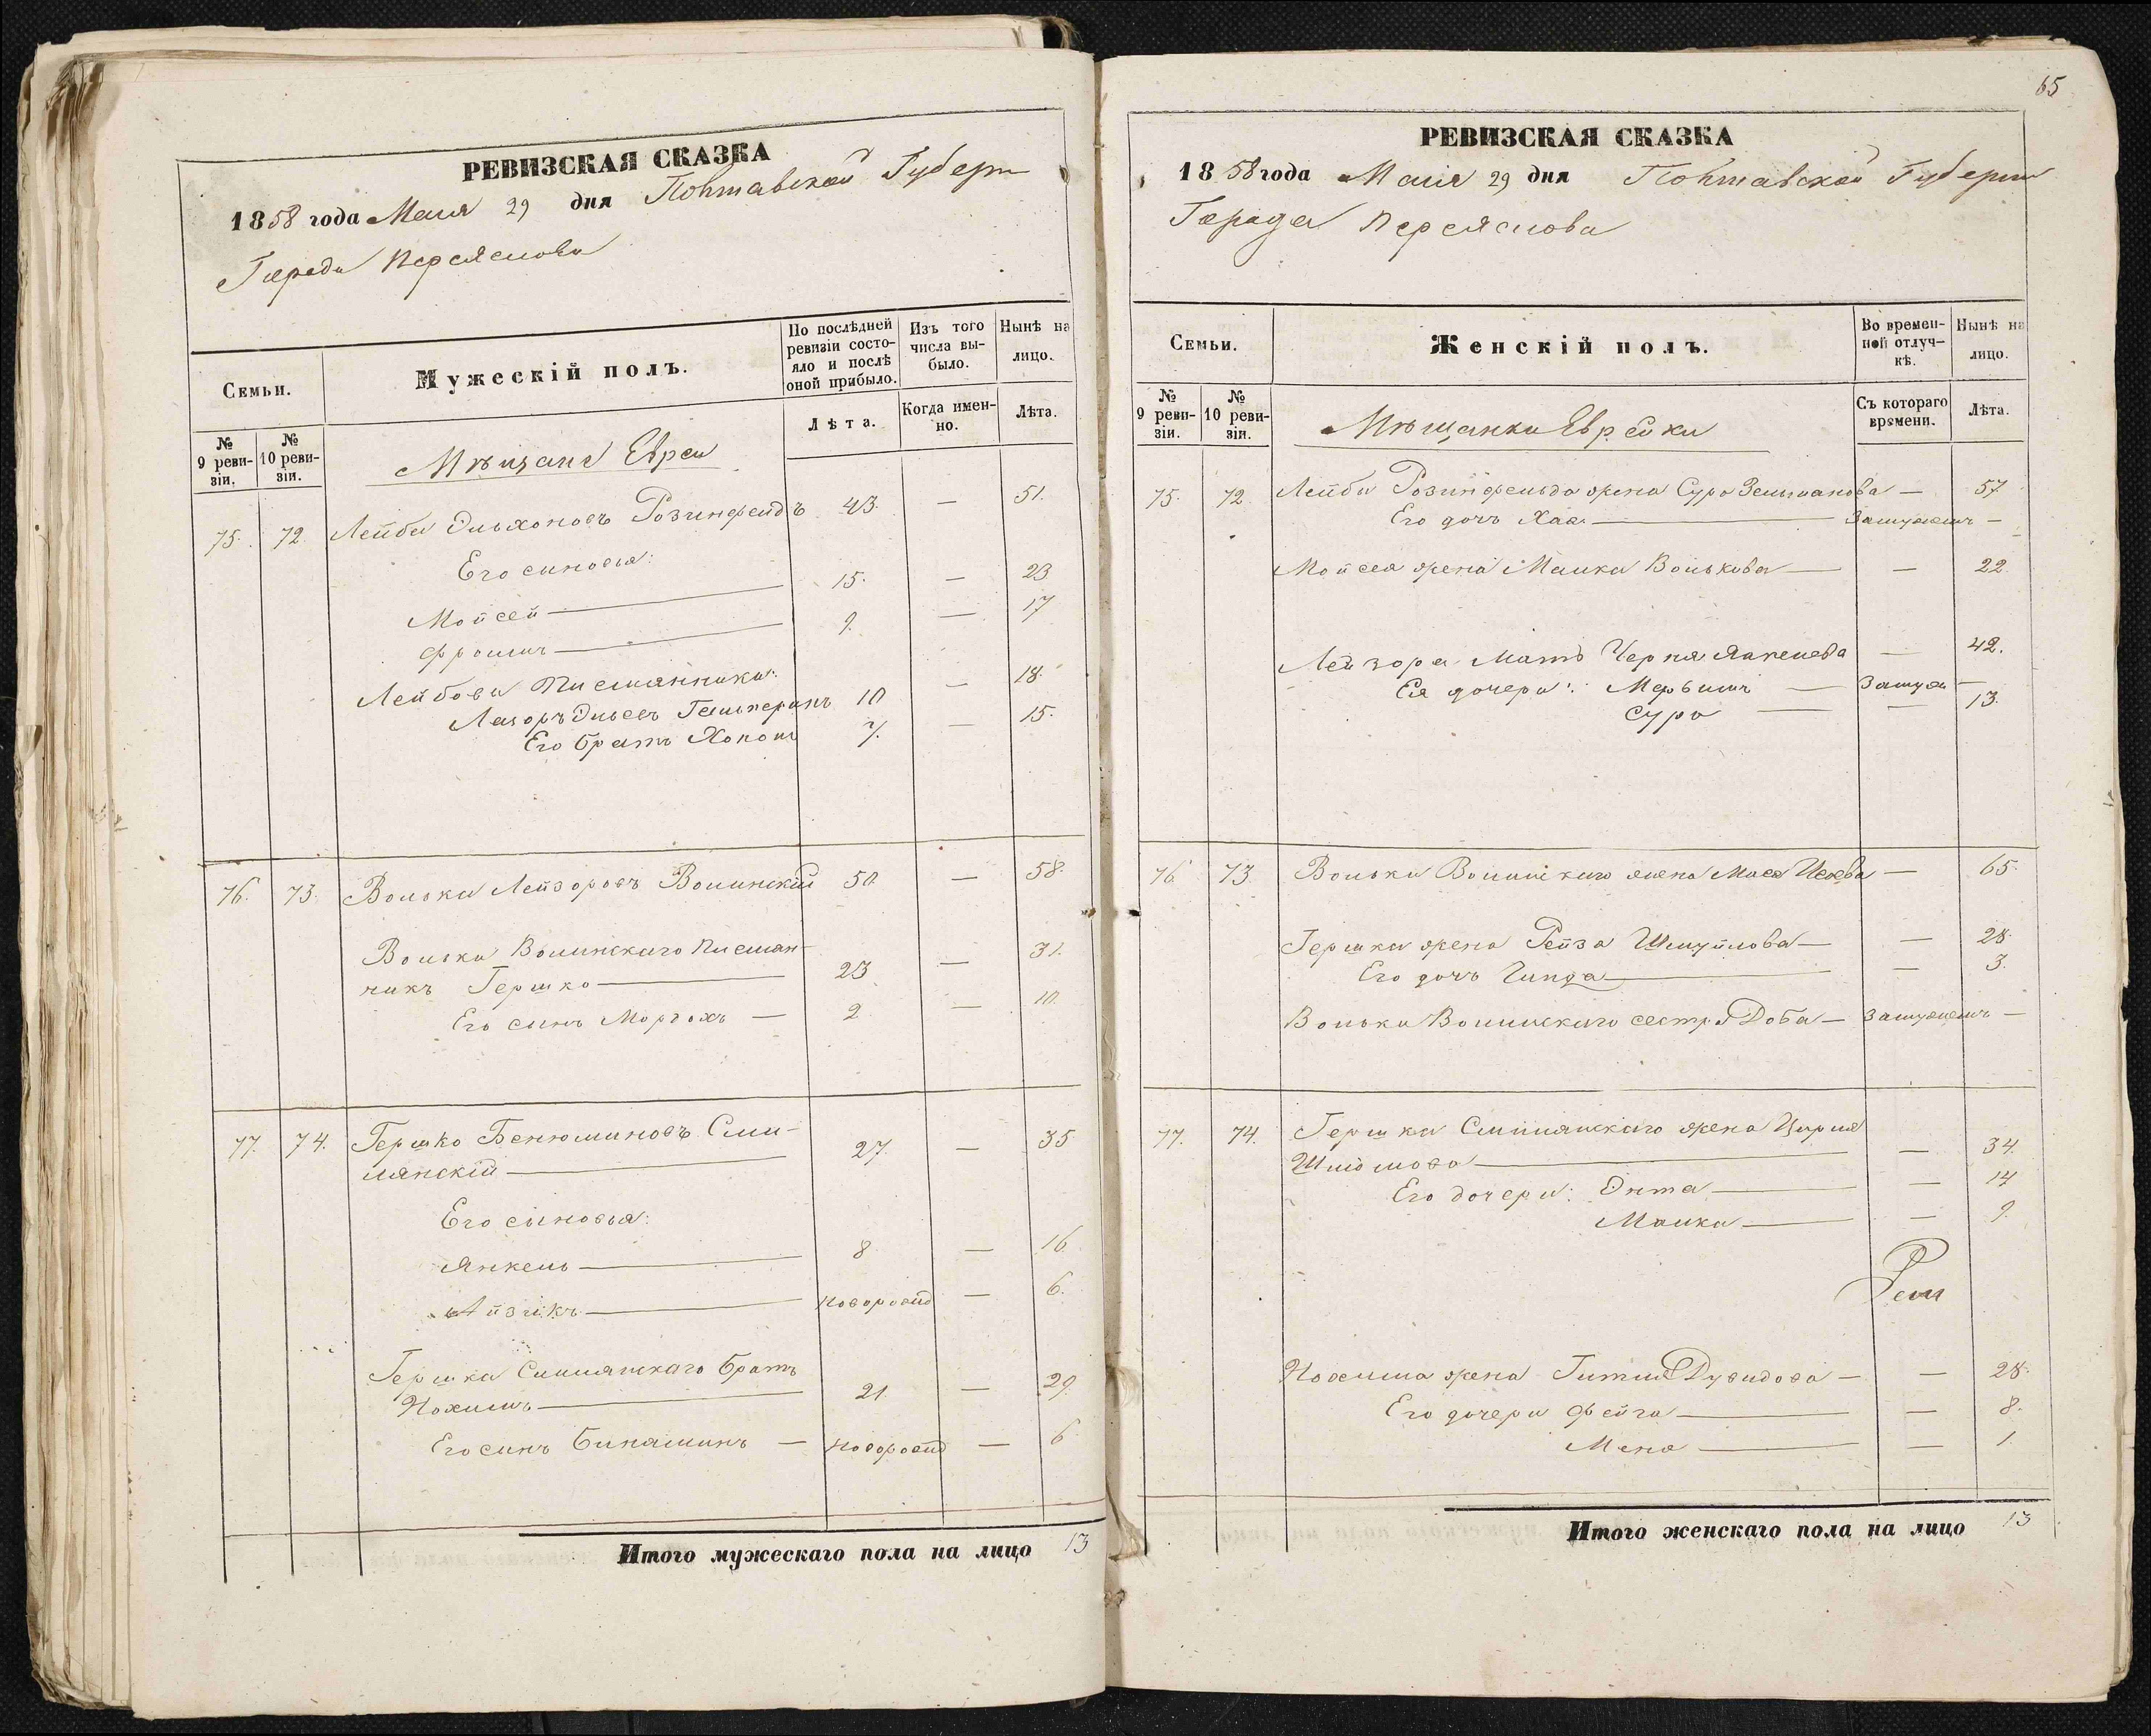 РЕВИЗСКАЯ СКАЗКА
1858 года Маия 29 дня Полтавской Губерн
Города Переяслова
Семьи.
Мужескій полъ.
По послѣдней ревизіи состояло и послѣ оной прибыло.
Изъ того числа выбыло.
Нынѣ на лицо.
№ 9 ревизіи.
№ 10 ревизіи.
Мѣщане Евреи
Лѣта.
Когда именно.
Лѣта.
75. 72. Лейба Эльхоновъ Розинфельдъ 43. — 51.
Его сыновья:
Мойсей — 15. — 23
Фроимъ — 9. — 17
Лейбова
Гальперинъ 10 — 18.
Его братъ Хононъ 7. — 15.
76. 73. Волька Лейзоровъ Волинскій 50 — 58.
Вольки Волинскаго племян-
никъ Гершко — 23 — 31.
Его сынъ Мордохъ — 2 — 10.
77. 74. Гершко Бенюминовъ Сми-
лянскій — 27. — 35
Его сыновья:
Янкель — 8 — 16
Айзикъ — новорожд — 6.
Гершка Смилянскаго братъ
Нохимъ — 21. — 29
Его сынъ Биняминъ — новорожд — 6
Итого мужескаго пола на лицо 13
65
РЕВИЗСКАЯ СКАЗКА
1858 года Маия 29 дня Полтавской Губерни
Города Переяслова
Семьи.
Женскій полъ.
Во временной отлучкѣ.
Нынѣ на лицо.
№ 9 ревизіи.
№ 10 ревизіи.
Мѣщанки Еврейки
Съ котораго времени.
Лѣта.
75. 72 Лейбы Розинфельда жена Сура Зельманова — 57
Его дочь Хая — Замужемъ —
Мойсея жена Малка Волькова — — 22
Лейзора Мать Черня Янкелева — 42.
Ея дочери: — Замуж —
Сура — — 13.
76. 73 Вольки Волинскаго жена — 65.
Гершка жена Рейза Шмуйлова — — 28.
Его дочь Гинда — — 3.
Вольки Волинскаго сестра Доба — Замужемъ —
77. 74. Гершка Смилянскаго жена Цирля
Шліомова — — 34.
Его дочери: Энта — — 14
Малка — — 9.
Нохима жена Гитля Дувидова — — 28.
Его дочери Фейга — — 8.
Мена — — 1.
Итого женскаго пола на лицо 13